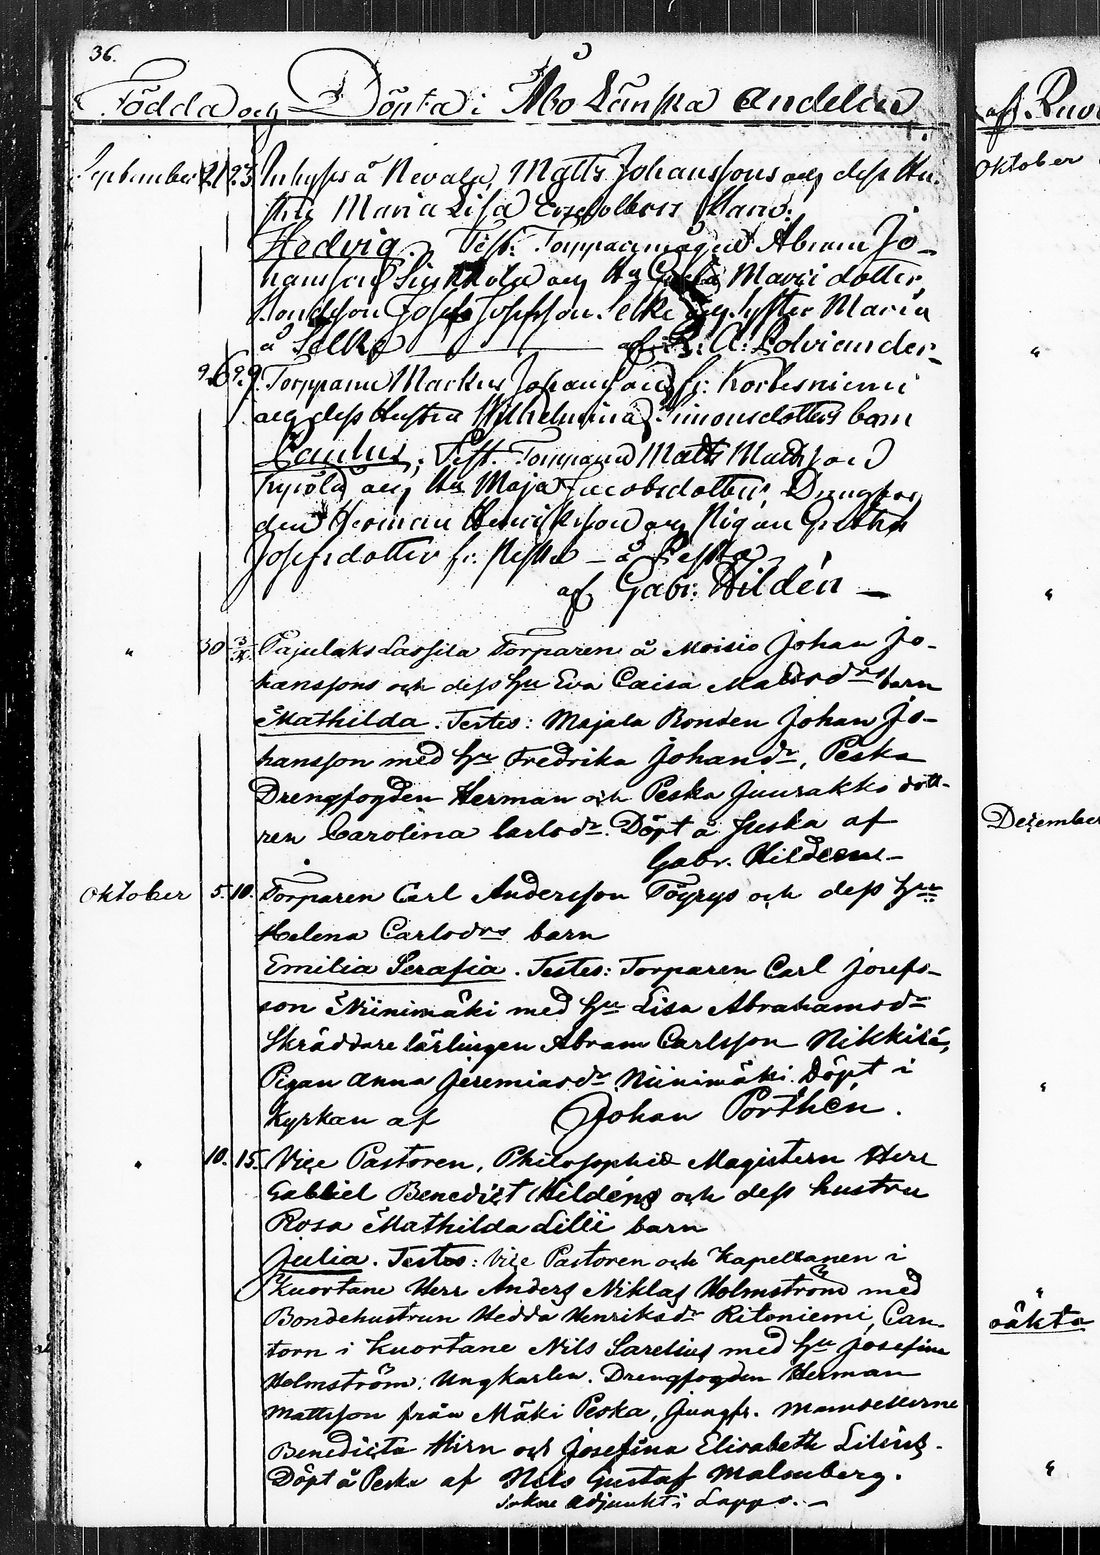 36.
Födda och Döpta i Åbo Länska andelen
September 21 23. Inhyses å Nevala, Matts Johanssons och dess Hu-
stru Maria Lisa barn:
Hedvig. Test: Torpparmågen Abram Jo-
hansson och Hu Maria dotter,
Bondeson Josef Josefsson Selke och Syster Maria
å Selke af
26 29. Torpparen Markus Johansson fr. Korkesniemi
och dess Hustru Wilhelmina Simonsdotters barn
Paulus; Test. Torpparen Matts Mattsson
och Hu Maja Jacobsdotter, Drengfog
den Herman Henriksson och Pigan Greta
Josefsdotter fr. Peska – å Peska
af Gabr: Hildén —
" 30 3/X Pajulaks Lassila Torparen å Moisio Johan Jo-
hanssons och dess Hu Eva Caisa Matsdrs barn
Mathilda. Testes: Majala Bonden Johan Jo-
hansson med Hu Fredrika Johansdr, Peska
Drengfogden Herman och Peska Juurakko dott-
ren Carolina Carlsdr. Döpt å Peska af
Gabr. Hildén—
Oktober 5. 10. Torparen Carl Andersson Töyrys och dess Hus
Helena Carlsdrs barn
Emilia Serafia. Testes: Torparen Carl Josefs-
son Niinimäki med Hu Lisa Abrahamsdr
Skräddare lärlingen Abram Carlsson Nikkilä,
Pigan Anna Jeremiasdr Niinimäki. Döpt i
Kyrkan af Johan Porthén.
" 10. 15. Vice Pastoren, Philosophie Magistern Herr
Gabriel Benedict Hildéns och dess hustru
Rosa Mathilda Lilii barn
Julia. Testes: Vice Pastoren och Kapellanen i
Kuortane Herr Anders Niklas Holmström med
Bondehustrun Hedda Henriksdr Ritoniemi, Can-
torn i Kuortane Nils Sarelius med Hu Josefina
Holmström; Ungkarlen. Drengfogden Herman
Mattsson från Mäki Peska, Jungfr. Mamsellerne
Benedicta Hirn och Josefina Elisabeth Lilius.
Döpt å Peska af Nils Gustaf Malmberg.
adjunkt i Lappo. —
af Ruo
Oktober
"
"
Dezember
"
"
oäkta
"